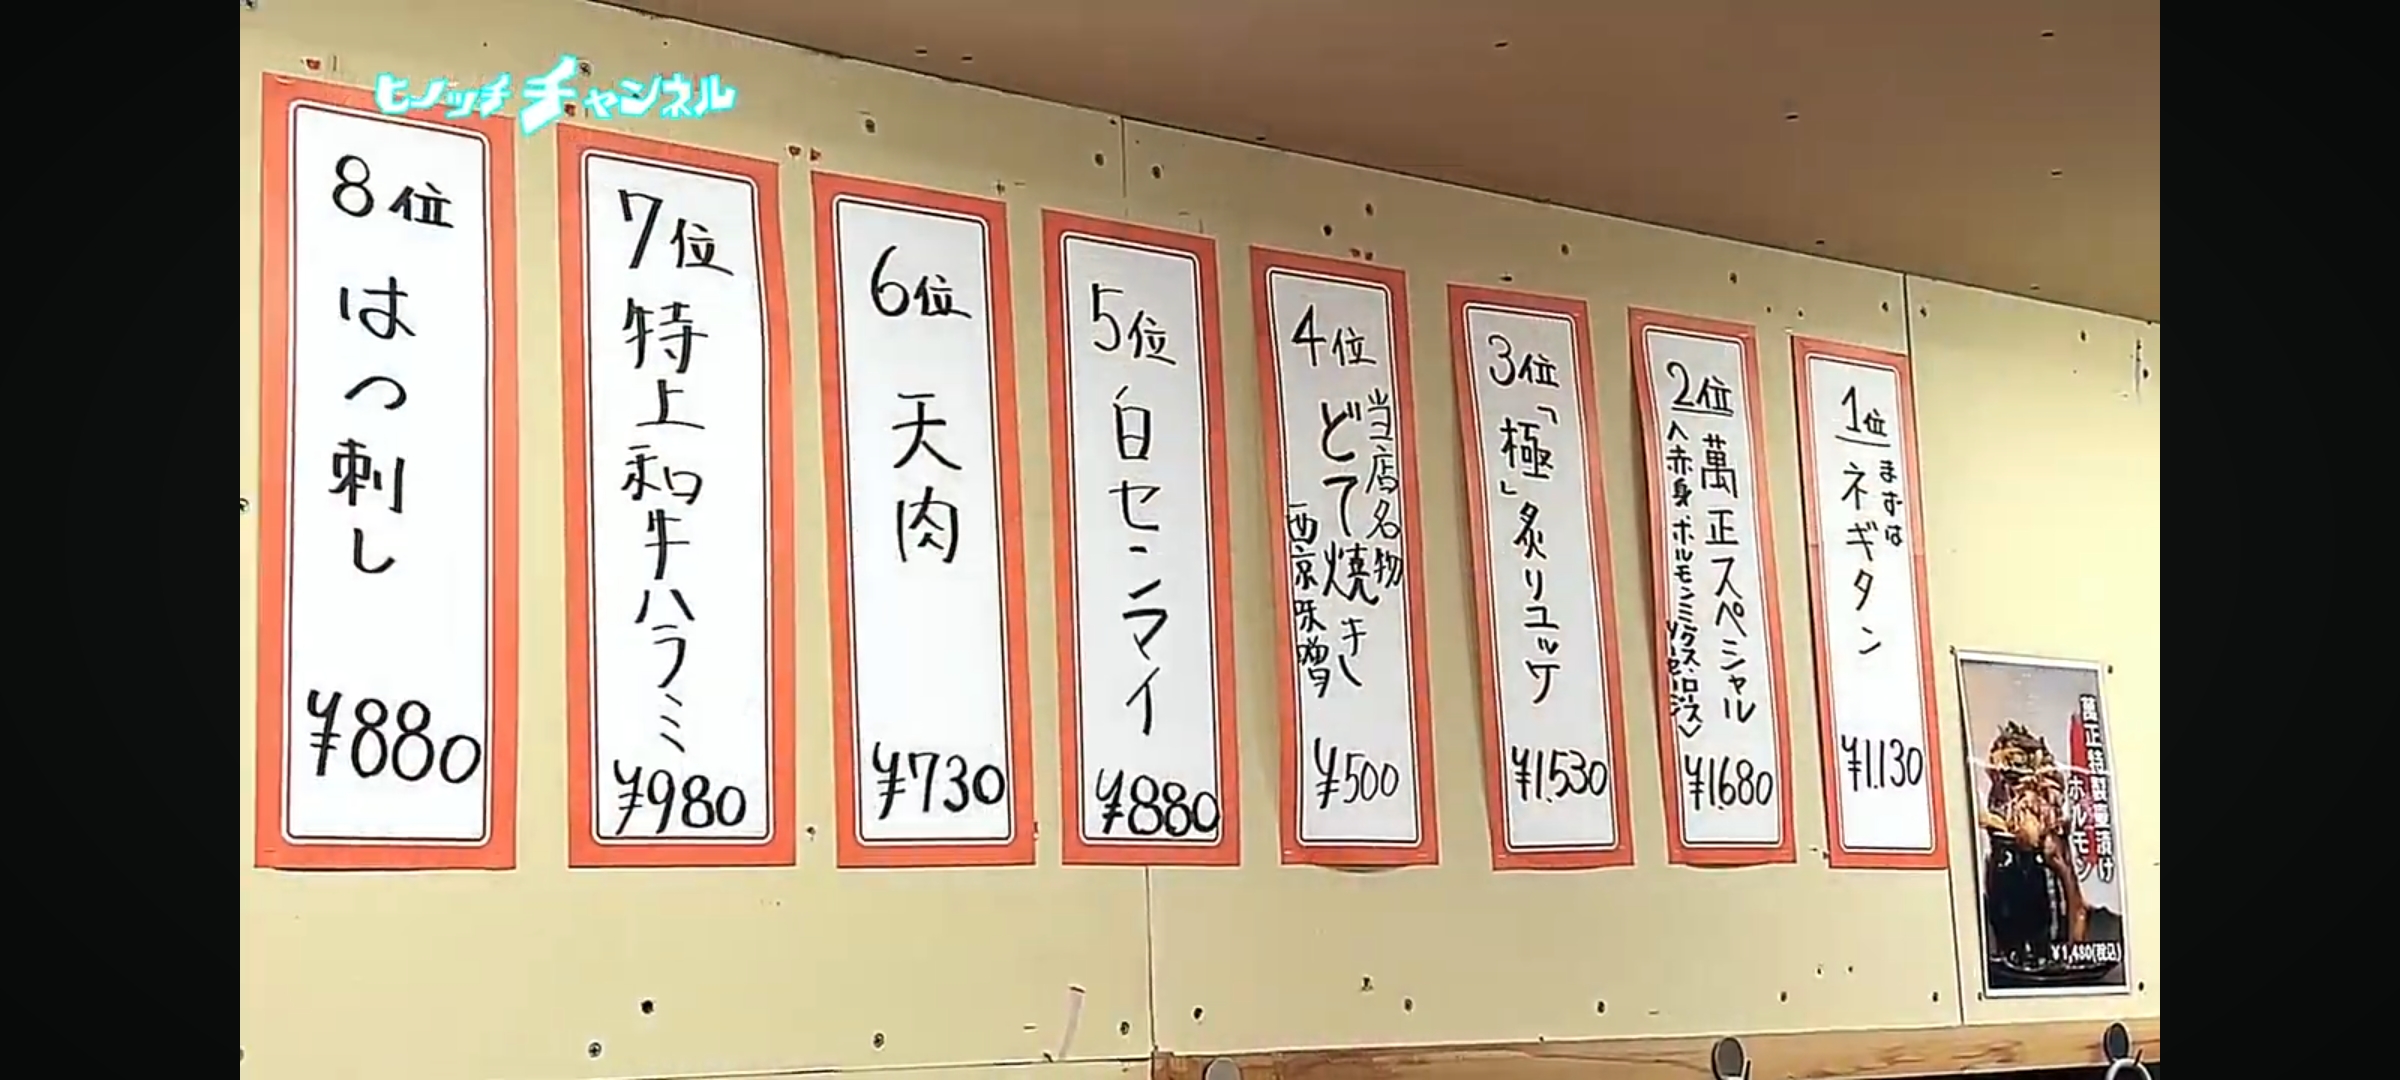 ヒノッチチャンネル
1位
まずは
ネギタン
¥1.130
2位
萬正スペシャル
〈赤身・ホルモンミックス・ロース・ソーセージ〉
¥1.680
3位
「極」炙リユッケ
¥1.530
4位
当店名物
どて焼き
西京味噌
¥500
5位
白センマイ
¥880
6位
天肉
¥730
7位
特上和牛ハラミ
¥980
8位
はつ刺し
¥880
萬正特製壷漬け
ホルモン
¥1,480(税込)